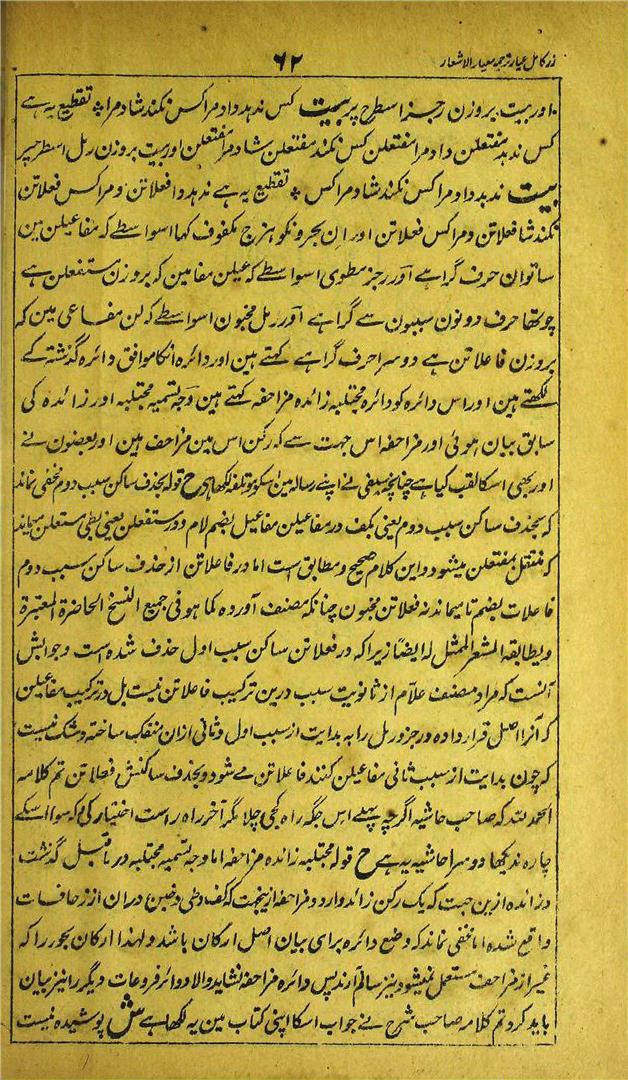 زر کامل عیار ترجمہ معیار الاشعار
۶۲
اور بیت بروزن رجز اسطرح پر بیت کس ندہد داد مراکس نکند شاد مرا تقطیع یہ ہے
کس ندہد مفتعلن داد مرا مفتعلن کس نکند مفتعلن شاد مرا مفتعلن اور بیت بروزن رمل اسطرحپر
بیت ندہد داد مراکس نکند شاد مراکس تقطیع یہ ہے ندہد دا فعلاتن د مراکس فعلاتن
نکند شا فعلاتن د مراکس فعلاتن اور ان بحرونکو ہزج مکفوف کہا اسواسطے کہ مفاعیلن مین
ساتوان حرف گرا ہے اور رجز مطوی اسواسطے کہ عیلن مفا مین کہ بروزن مستفعلن ہے
چوتھا حرف دونون سببون سے گرا ہے اور رمل مخبون اسواسطے کہ لن مفاعی مین کہ
بروزن فاعلاتن ہے دوسرا حرف گرا ہے کہتے ہین اور دائرہ انکا موافق دائرہ گذشتہ کے
لکھتے ہین اور اس دائرہ کو دائرہ مجتلبہ زائدہ مزاحفہ کہتے ہین وجہ تسمیہ مجتلبہ اور زائدہ کی
سابق بیان ہوئی اور مزاحفہ اس جہت سے کہ رکن اس مین مزاحف ہین اور بعضون نے
اور بھی اسکا لقب کیا ہے چنانچہ سیفی نے اپنے رسالہ مین اسکو موتلفہ لکھا ہے ح قولہ بحذف ساکن سبب دوم مخفی نماند
کہ بحذف ساکن سبب دوم یعنی بکف در مفاعیلن مفاعیل بضم لام و در مستفعلن یعنی بطی مستعلن میماند
کہ منتقل بمفتعلن میشود و این کلام صحیح و مطابق است اما در فاعلاتن از حذف ساکن سبب دوم
فاعلات بضم تا میماند نہ فعلاتن مخبون چنانکہ مصنف آوردہ کما ہو فی جمیع النسخ الحاضرۃ المعتبرۃ
و یطابقہ الشعر الممثل لہ ایضاً زیرا کہ در فعلاتن ساکن سبب اول حذف شدہ است و جوابش
آنست کہ مراد مصنف علام از ثانویت سبب درین ترکیب فاعلاتن نیست بل در ترکیب مفاعیلن
کہ آنرا اصل قرار دادہ و رجز و رمل را بہ بدایت از سبب اول و ثانی ازان منفک ساختہ و شک نیست
کہ چون بدایت از سبب ثانی مفاعیلن کنند فاعلاتن مے شود و بحذف ساکنش فعلاتن تم کلامہ
الحمد للہ کہ صاحب حاشیہ اگرچہ پہلے اس جگہ راہ کجی چلا مگر آخر راہ راست اختیار کی کہ سوا اسکے
چارہ ندیکھا دوسرا حاشیہ یہ ہے ح قولہ مجتلبہ زائدہ مزاحفہ اما وجہ تسمیہ مجتلبہ در ماقبل گذشت
و زائدہ ازین جہت کہ یک رکن زائد دارد و مزاحفہ ازینجہت کہ کف و طی و خبن دران از زحافات
واقع شدہ اما مخفی نماند کہ وضع دائرہ برای بیان اصل ارکان باشد و لہذا ارکان بحور را کہ
غیر از مزاحف مستعمل نمیشود نیز سالم آرند پس دائرہ مزاحفہ نشاید والا دوائر فروعات دیگر را نیز بیان
باید کرد تم کلامہ صاحب شرح نے جواب اسکا اپنی کتاب مین یہ لکھا ہے ش پوشیدہ نیست